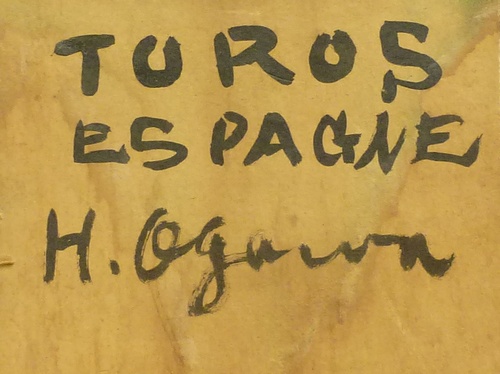 TOROS
ESPAGNE
H. Ogawa